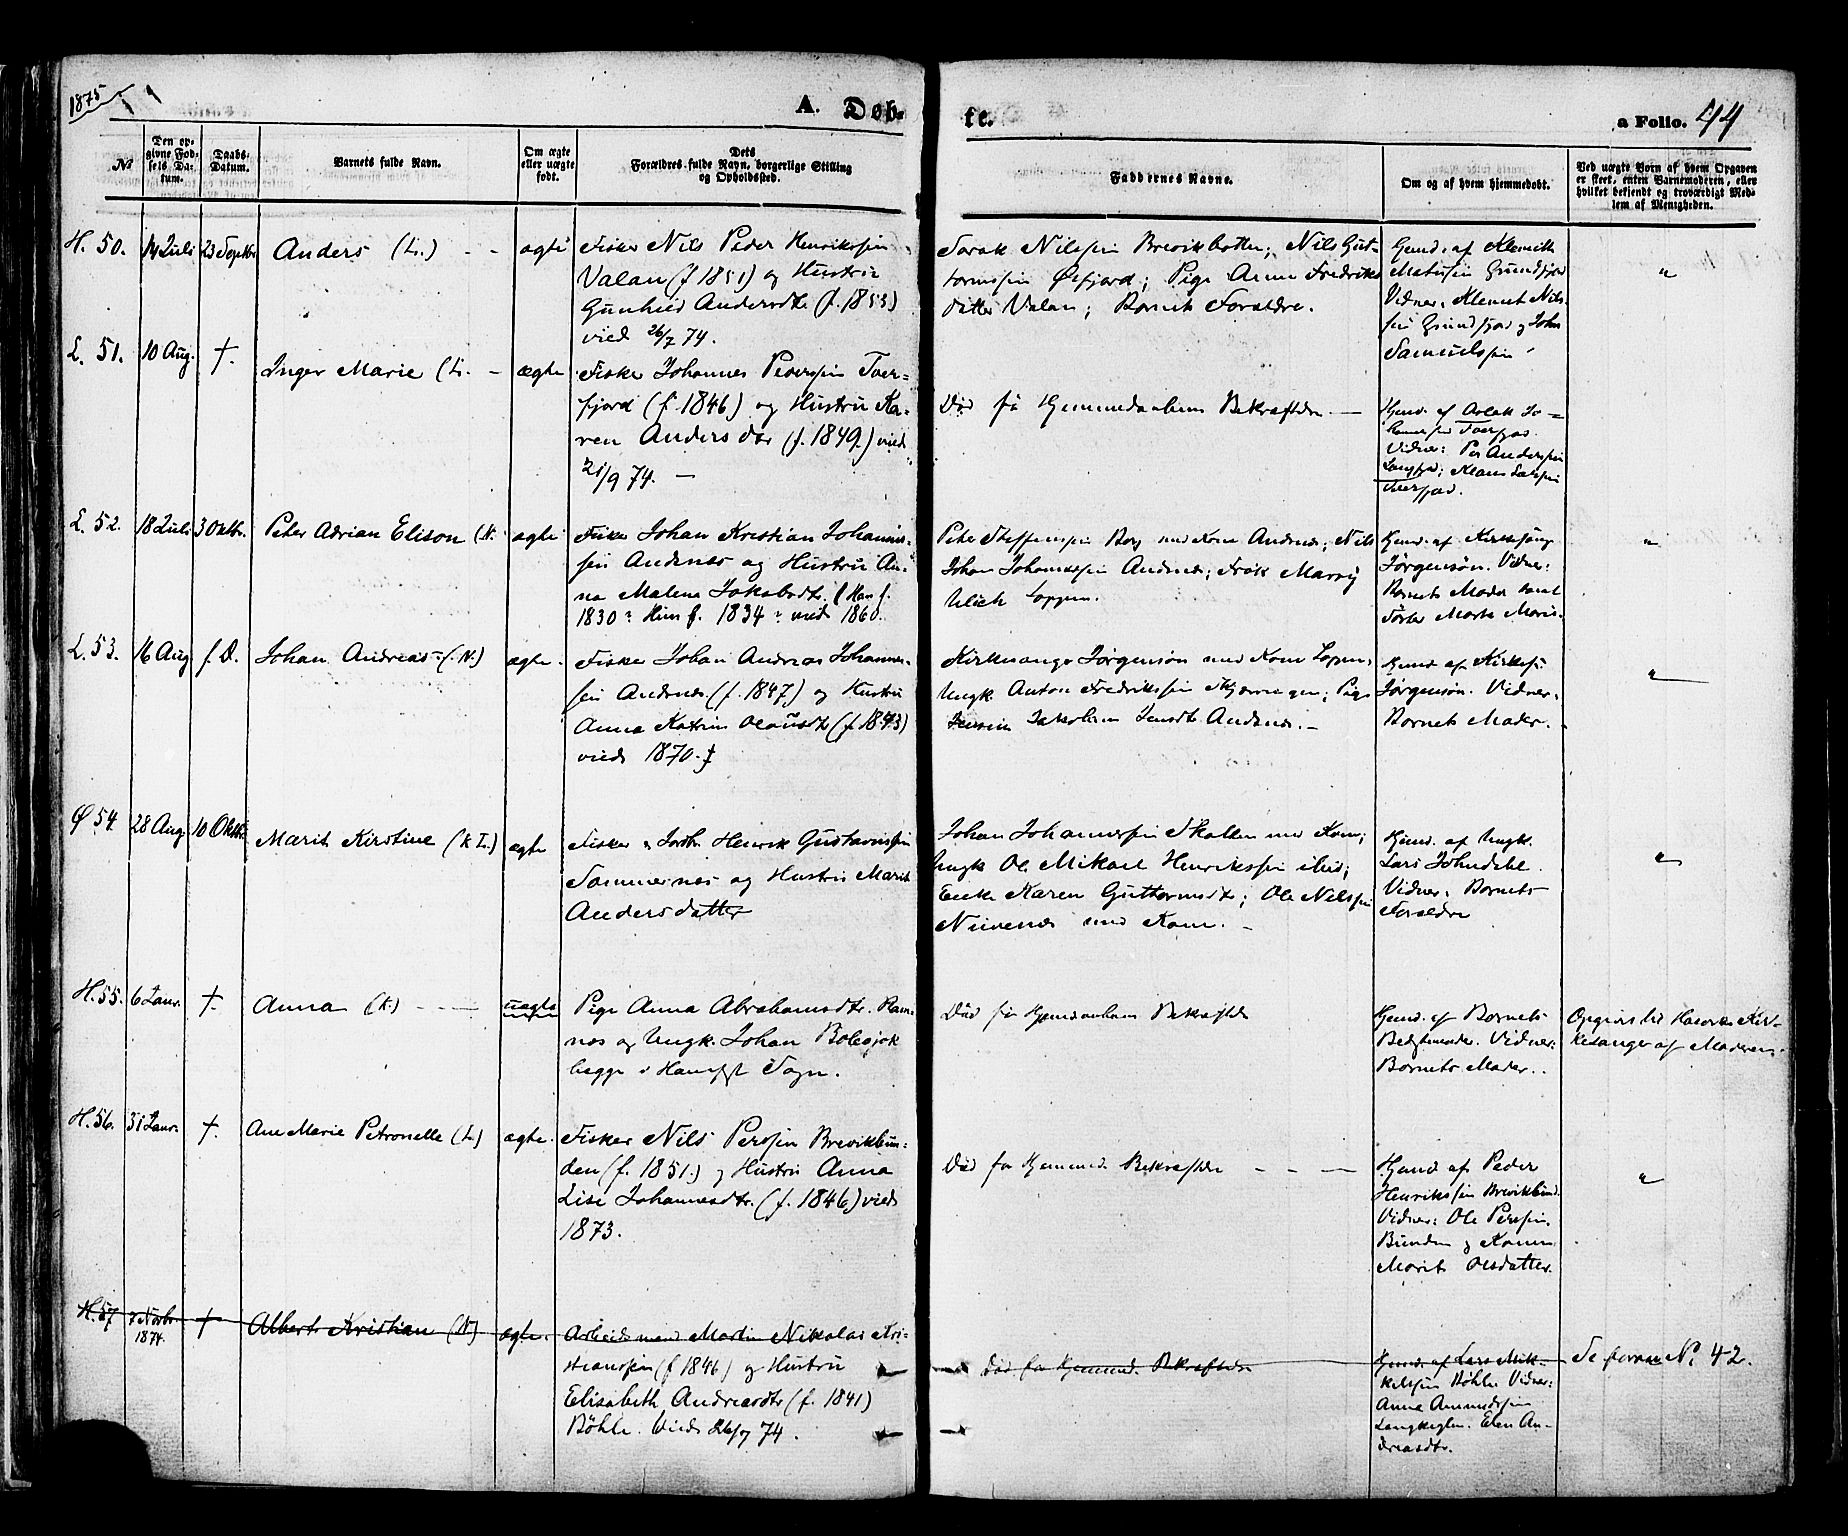 1875
A. Døb-
te.
a Folio. 44
No
Den op-
givne Fød-
sels Da-
tum.
Daabs-
Datum.
Barnets fulde Navn.
Om ægte
eller uægte
født.
Dets
Forældres fulde Navn, borgerlige Stilling
og Opholdssted.
Faddernes Navne.
Om og af hvem hjemmedøbt.
Ved uægte Børn af hvem Opgaven
er skeet, enten Barnemoderen, eller
hvilket bekjendt og troværdigt Med-
lem af Menigheden.
H. 50.
14 Juli
23 Septbr
Anders (L.) - -
ægte
Fisker Nils Peder Henrikssen
Valan (f 1851) og Hustru
Gunhild Andersdtr (f. 1853)
vied 26/7 74.
Nilssen Brevikbotn; Nils Gut-
tormssen Øxfjord; Pige Anne Fredriks
datter Valan; Barnets Forældre.
Hjmd. af Klemitt
Matissen Grundfjord
Vidner: Klemet Nils-
sen Grundfjord og John
Samuelssen
"
L. 51.
10 Aug.
†.
Inger Marie (L. -
ægte
Fisker Johannes Pederssen Tver-
fjord (f. 1846) og Hustru Ka-
ren Andersdtr (f. 1849.) vied
21/9 74. -
Død før Hjemmedaabens Bekræftelse -
Hjmd. af Aslak Jo-
hannessen Tverfjord.
Vidner: Per Anderssen
Langfjord; Klaus Larssen
Tverfjord.
L. 52.
18 Juli
3 Oktbr.
Peter Adrian Elison (N.
ægte
Fisker Johan Kristian Johannes-
sen Andsnes og Hustru An-
na Malena Jakobsdtr. (Han f.
1830 ? Hun f. 1834 ? vied 1860.
Peter Steffenssen Berg med Kone Andsnes; Nils
Johan Johannessen Andsnes; Frøk Marry
Ulich Loppen.
Hjmd. af Kirkesang.
Jørgensøn. Vidner:
Barnets Moder samt
"
L. 53.
16 Aug
f. D.
Johan Andreas - (N.)
ægte.
Fisker Johan Andreas Johannes-
sen Andsnes. (f. 1847) og Hustru
Anna Katrine Olausdtr (f. 1843)
vied 1870.
Kirkesanger Jørgensøn med Kone Loppen;
Ungk. Anton Fredrikssen; Pige
Jakobine Jensdtr Andsnes. -
Hjmd af Kirkes.
Jørgensøn. Vidner:
Barnets Moder. -
"
Ø 54.
28 Aug.
10 Oktbr
Marit Kirstine (K L.)
ægte
Fisker & Jordbr. Henrik Gustavussen
Sommernes og Hustru Marit
Andersdatter
Johan Johannessen Skallen med Kone;
Ungk Ole Mikael Henrikssen ibid;
Enke Karen Guttormsdtr; Ole Nilssen
Nuvenes med Kone. -
Hjmd. af Ungk.
Lars Johndahl.
Vidner: Barnets
Forældre
"
H. 55.
6 Janr.
†.
Anna (K.) - - -
uægte
Pige Anna Abrahamsdtr. Ram-
nes og Ungk. Johan Bolesjok
begge i Hamrfst Sogn.
Død før Hjemdaabens Bekræftelse
Hjmd. af Barnets
Bedstemoder. Vidner:
Barnets Moder..
Opgivet til Hasvik Kir-
kesanger af Moderen.
H. 56.
31 Janr.
†.
Ane Marie Petronelle (L.)
ægte.
Fisker Nils Perssen Brevikbun-
den (f. 1851.) og Hustru Anna
Lise Johannesdtr. (f. 1846.) vied
1873.
Død før Hjemmed. Bekræftelse - - -
Hjmd. af Peder
Henrikssen Brevikbund.
Vidner: Ole Perssen
Bunden og Konen
Marit Olsdatter.
"
H. 57
7 Novbr.
1874.
†
Albert Kristian (N.)
ægte.
Arbeidsmand Martin Nikolai Kri-
stianssen (f 1846) og Hustru
Elisabeth Andreasdtr (f. 1841)
Bøhle. Vied 26/7 74.
Død før Hjemmed. Bekræftelse
Hjmd. af Lars Mik-
kelssen Bøhle. Vidner:
Anna Amundssen
Langkeglen. Elen An-
dreasdtr.
Se foran No 42.